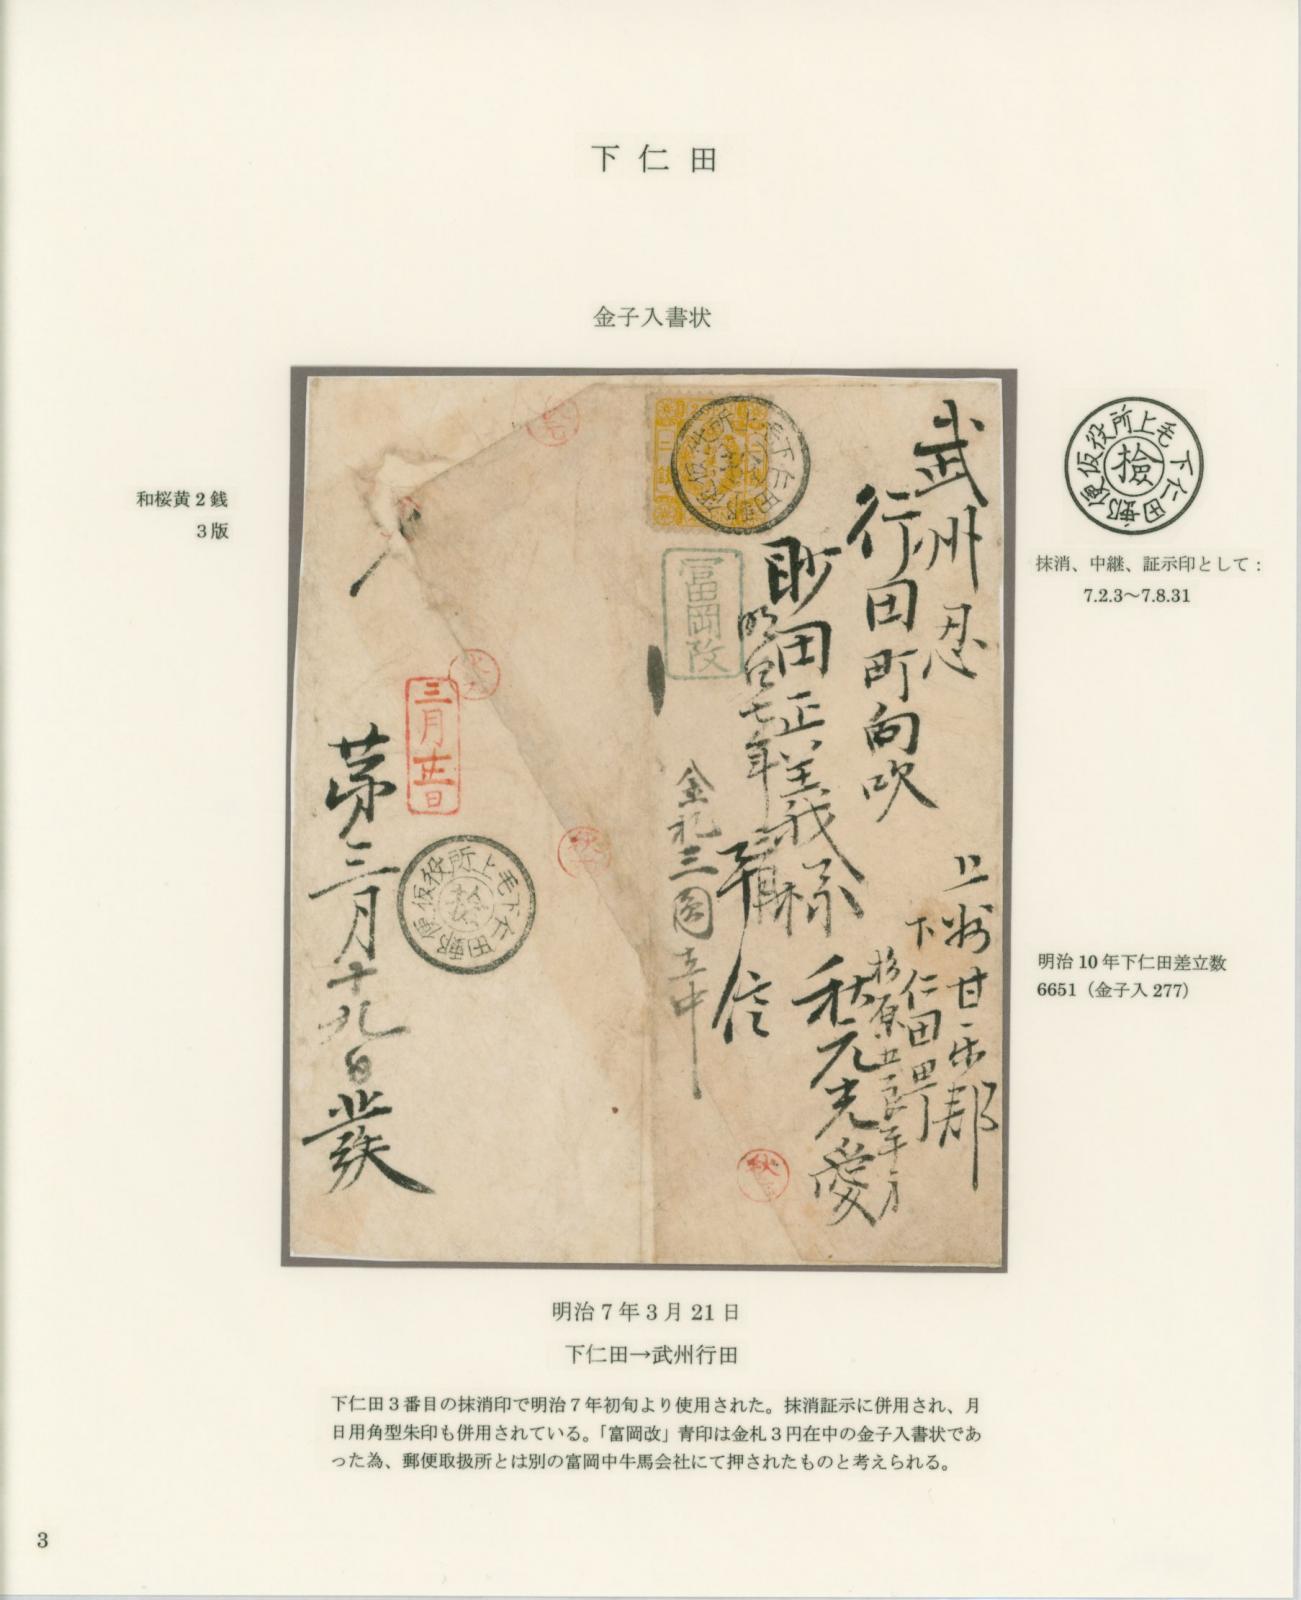 下仁田
金子入書状
和桜黄2銭
3版
上毛下仁田郵便仮役所
檢
抹消、中継、証示印として：
7.2.3～7.8.31
武州忍
行田町向吹
正義様
明治七年
上州甘楽郡
下仁田町
秋元光愛
平信
金札三圓在中
富岡改
上毛下仁田郵便仮役所
二銭
三月廿一日
第三月十九日発
上毛下仁田郵便仮役所
檢
秋元
明治10年下仁田差立数
6651（金子入277）
明治7年3月21日
下仁田→武州行田
下仁田3番目の抹消印で明治7年初旬より使用された。抹消証示に併用され、月
日用角型朱印も併用されている。「富岡改」青印は金札3円在中の金子入書状であ
った為、郵便取扱所とは別の富岡中牛馬会社にて押されたものと考えられる。
3